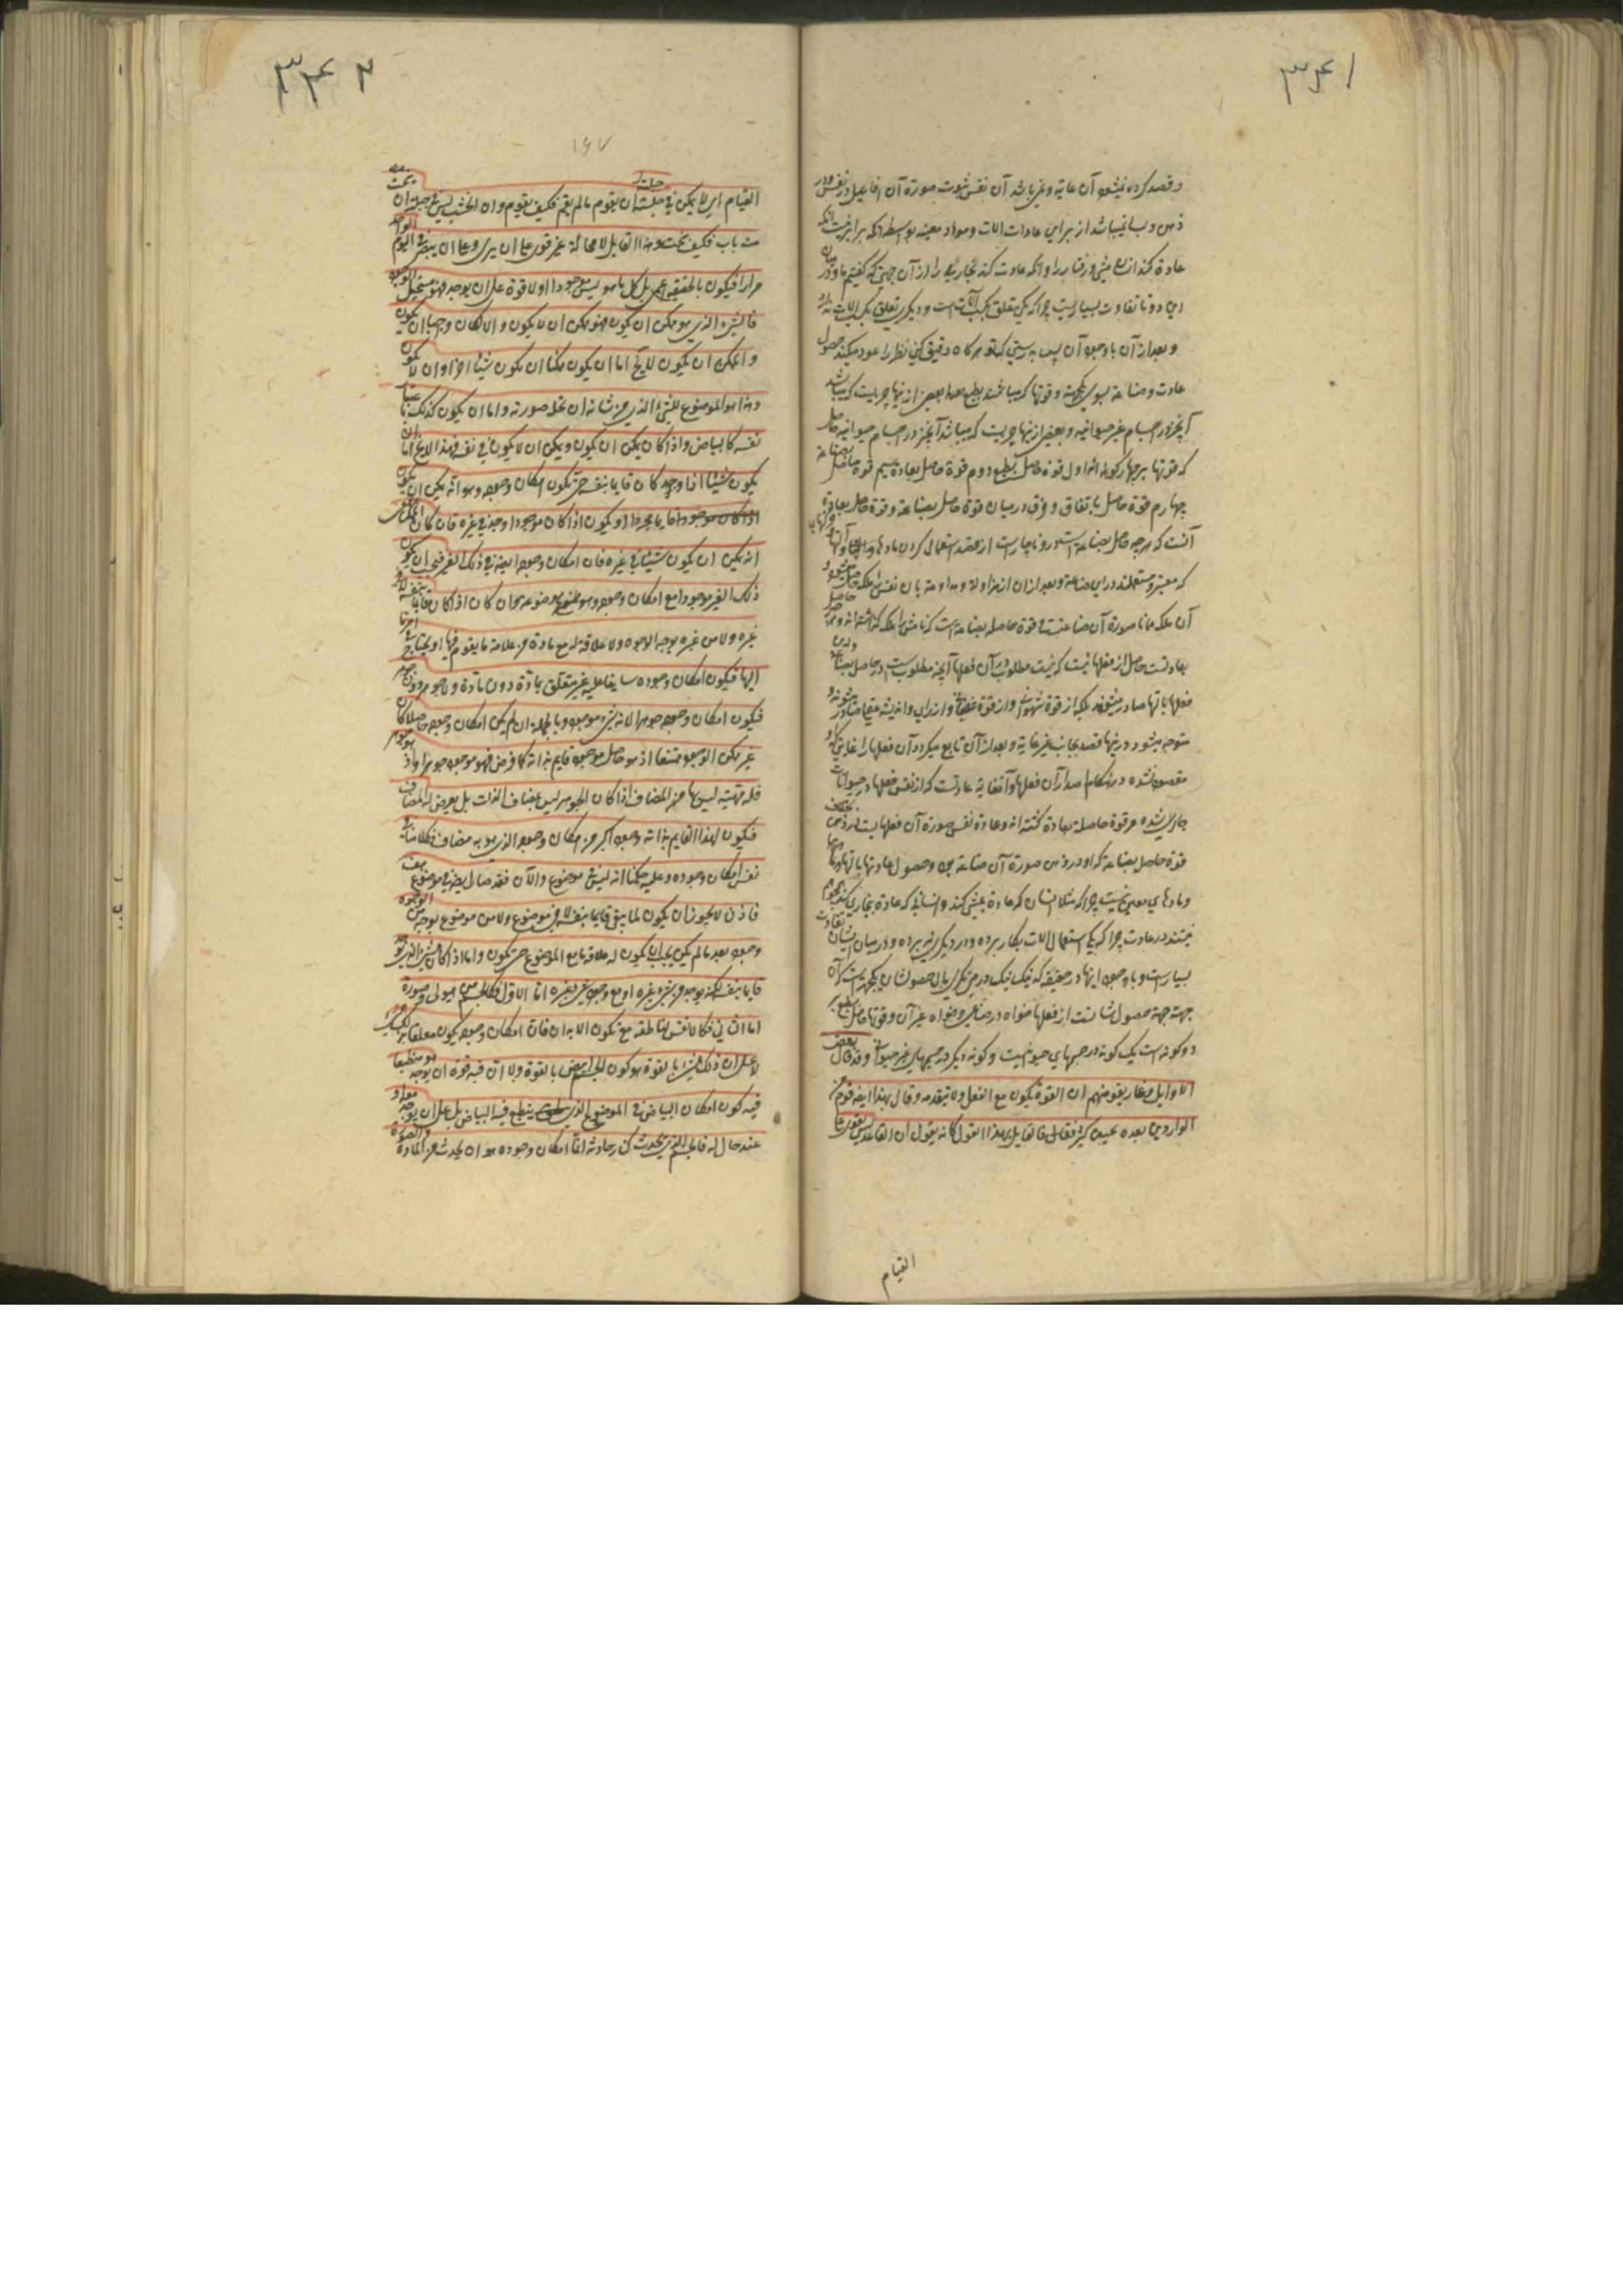 ۳۴۱
و قصد کرده نیشود آن غایة و غیر باشد آن نفس ثبوت صورة آن افاعیل در نفس و در
ذهن و بسا نیباشد از برای عادات الات و مواد معینه بواسطه آنکه برابر نیست آنکه
عادة کند از برای مشی و رفتار را و آنکه عادت کند نجاری را از آن جهتی که گفتیم با وجود
این دو تا تفاوت بسیاریست چرا که یکی تعلق بکسب آلاتست و دیگری تعلق بکسب الات ندارد
و بعد از آن با وجود آن پس بدرستی که تو هر کاه دقیق کنی نظر را عود میکند حصول
عادت و صناعة بسوی یکجهة و قوتها که میباشند بطبع بعضی از اینها چیزیست که میباشد
آنچیز در اجسام غیر حیوانیه و بعضی از اینها چیزیست که میباشد آنچیز در اجسام حیوانیه حاصل
که قوتها بر چهار کونه اند اول قوة حاصل بطبع دوم قوة حاصل بعادة سیم قوة حاصل بصناعة
چهارم قوة حاصل باتفاق و فرق در میان قوة حاصل بصناعة و قوة حاصل بعادة
آنست که هر چه حاصل بصناعة است در و ناچار است از قصد استعمال کردن مادها و آلتها
که معتبر و مستعملند در این صناعة و بعد از آن از مزاولة و مداومة بآن نفس را ملکه حاصل میشود و
آن ملکه همانا صورة آن صناعتست و قوة حاصله بصناعة است که نامش را ملکه گذاشته اند
بعادتست حاصل از فعلهائیست که نیست مطلوب در آن فعلها آنچه مطلوبست در حاصل بصناعة
فعلها بآنها صادر میشوند بلکه از قوة شهوانی و از قوة غضبانی و از رای و اندیشه صادر میشوند و
متوجه میشود در اینها قصد بجانب غیر غایة و بعد از آن تابع میکردد آن فعلها را غایتی که او
مقصود نشده در هنکام صدور آن فعلها و آنغایة عادتست که از نفس فعلها در حیوانات
جاری شده و قوة حاصلة بعادة گفته اند و عادة نفس صورة آن فعلها نیست در ذهن بخلاف
قوة حاصل بصناعة که او در ذهن صورة آن صناعة بود و حصول عادتها بآلتها و
و مادهای معین نیست چرا که مثلا انسان که عادة بمشی کند و انسانی که عادة بنجاری کند
نیستند در عادت چرا که یکی استعمال الات بکار برده و در دیگری نبرده و در میان ایشان تفاوت
بسیار است و با وجود اینها در حقیقه که نیک نیک در من نگری بازحصولشان بیکجهة است که آن
جهة جهة حصول شانست از فعلها خواه در صناعی و خواه غیر آن و قوتها حاصل بطبع بر
دو کونه است یک کونه در جسمهای حیوانیست و کونه دیگر در جسمهای غیر حیوانی و قد قال بعض
الاوایل و غاریقو منهم ان القوة یکون مع الفعل و لا یتقدمه و قال بهذا ایضا قوم من
الواردین بعده بحین کثیر فقال فالقایل بهذا القول کانه یقول ان القاعد لیس یقوی علی
القیام
۳۴۲
۱۶۷
القیام ای لا یمکن فی جبلته ان یقوم ما لم یقم فکیف یقوم و ان الخشب لیس فی جبلته ان ینحت
منه باب فکیف ینحت و هذا القایل لا محالة غیر قوی علی ان یری و علی ان یبصر فی الیوم الواحد
مرارا فیکون بالحقیقة اعمی بل کل ما هو لیس موجودا و لا قوة علی ان یوجد فهو مستحیل الوجود
فالشیء الذی هو ممکن ان یکون فهو ممکن ان لا یکون و الا لکان واجبا ان یکون
و الممکن ان یکون لا یخ اما ان یکون ممکنا ان یکون شیئا اخر او ان لا یکون
و هذا هو الموضوع للشیء الذی من شانه ان تحله صورته و اما ان یکون کذلک باعتبار
نفسه کالبیاض و اذا کان یمکن ان یکون و یمکن ان لا یکون فی نفسه فهذا لا یخ اما ان
یکون شیئا اذا وجد کان قایما بنفسه حتی یکون امکان وجوده هو انه یمکن ان یکون
قایما مجردا او یکون اذا کان موجودا وجد فی غیره فان کان الممکن
انه یمکن ان یکون شیئا فی غیره فان امکان وجوده ایضا فی ذلک الغیر فیجب ان یکون
ذلک الغیر موجودا مع امکان وجوده و هو موضوعه و ان کان اذا کان قایما بنفسه لا فی
غیره و لا من غیره بوجه من الوجوه و لا علاقة له مع مادة من المواد علاقة ما یقوم فیها او یحتاج فی امر ما
الیها فیکون امکان وجوده سابقا علیه غیر متعلق بمادة دون مادة و لا جوهر دون جوهر
فیکون امکان وجوده جوهرا لانه شیء موجود و بالجملة ان لم یکن امکان وجوده حاصلا کان
غیر ممکن الوجود ممتنعا و اذ هو حاصل موجود قایم بذاته کما فرض فهو موجود جوهرا و اذ هو جوهر
فله مهیة لیس لها من المضاف اذا کان الجوهر لیس بمضاف الذات بل یعرض له المضاف
فیکون لهذا القایم بذاته وجود اکثر من امکان وجوده الذی هو به مضاف و کلامنا فی
نفس امکان وجوده و علیه حکمنا انه لیس فی موضوع و الآن فقد صار ایضا فی موضوع هف
فاذن لا یجوز ان یکون لما یبقی قایما بنفسه لا فی موضوع و لا من موضوع بوجه من الوجوه
وجود بعد ما لم یکن بل یجب ان یکون له علاقة ما مع الموضوع حتی یکون و اما اذا کان الشیء الذی یوجد
قایما بنفسه لکنه یوجد من شیء غیره او مع وجود شیء غیره اما الاول فکالجسم من هیولی و صورة
اما الثانی فکالانفس الناطقة مع تکون الابدان فان امکان وجوده یکون متعلقا بذلک
لا علی ان ذلک الشیء بالقوة هو کون الجسم ابیض بالقوة و لا ان فیه قوة ان یوجد هو منطبعا
فیه کون امکان البیاض فی الموضوع الذی ینطبع فیه البیاض بل علی ان یوجد معه او
عند حال له فالجسم الذی یحدث کنار حادثة انما امکان وجوده هو ان یحدث من المادة و الصورة